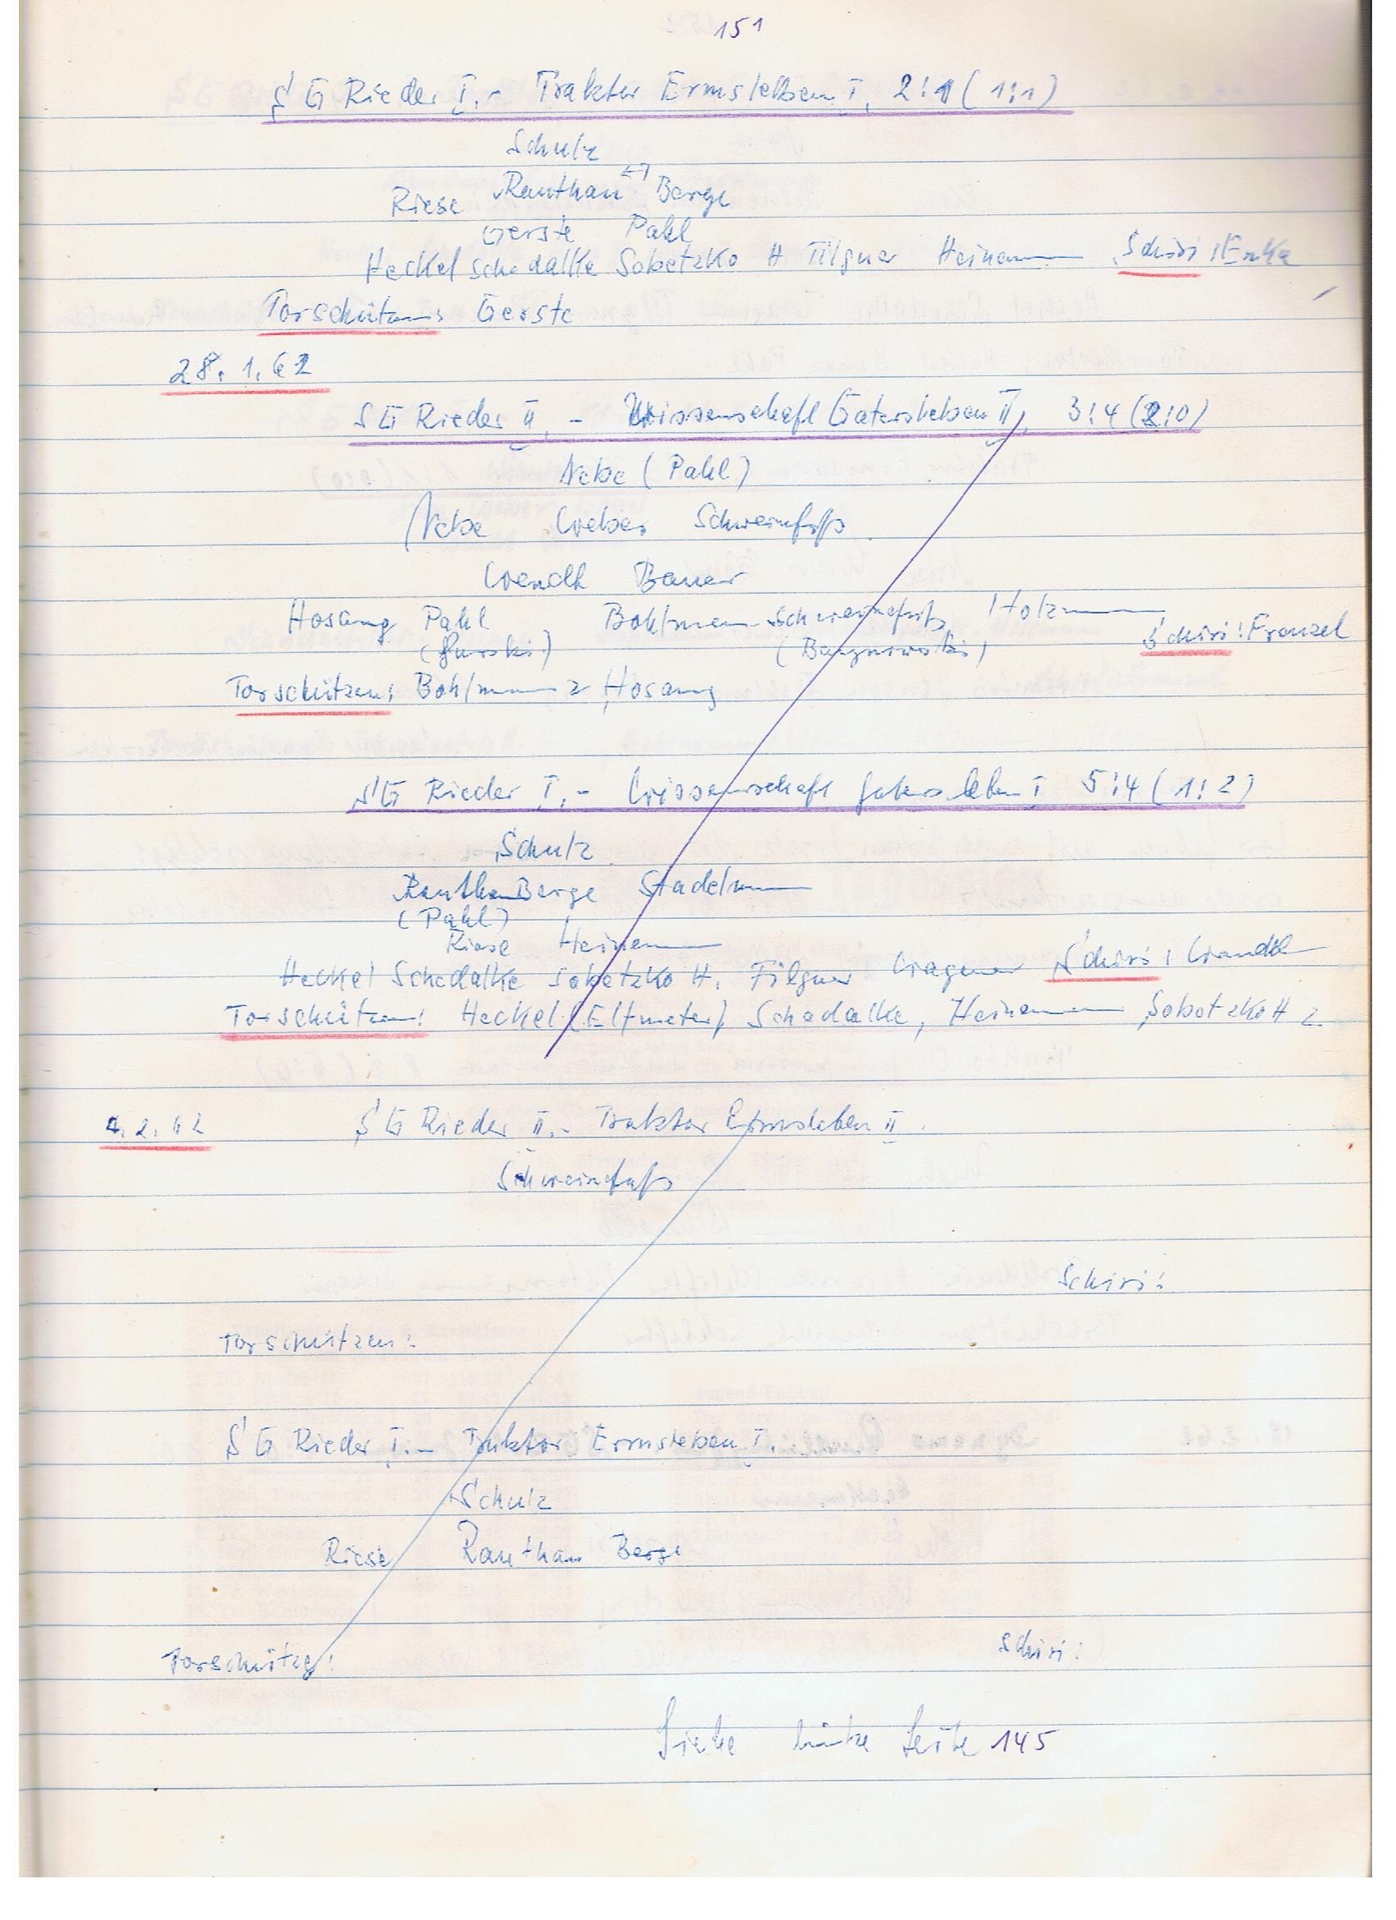 151
SG Rieder I. - Traktor Ermsleben I. 2:1 (1:1)
Schulz
Riese Rauthan ↔ Berge
Gerste Pahl
Heckel Schadalke Sobetzko H Filgner Heinemann Schiri: Enke
Torschützen: Gerste
28.1.62
SG Rieder II. - Wissenschaft Gatersleben II, 3:4 (2:0)
Nebe (Pahl)
Nebe Weber Schweinefuß
Wendt Bauer
Hosang Pahl Bohlmann Schweinefuß Holzmann
(Gurski) Schiri: Frenzel
Torschützen: Bohlmann 2, Hosang
SG Rieder I. - Wissenschaft Gatersleben I 5:4 (1:2)
Schulz
Rauthan Berge Stadelmann
(Pahl)
Riese Heinemann
Heckel Schadalke Sobetzko H. Filgner Wagener Schiri:
Torschützen: Heckel (Elfmeter), Schadalke, Heinemann, Sobotzko H 2
4.2.62 SG Rieder II. - Traktor Ermsleben II.
Schweinefuß
Schiri:
Torschützen:
SG Rieder I. - Traktor Ermsleben I.
Schulz
Riese Rauthan Berge
Torschütze: Schiri:
Siehe linke Seite 145